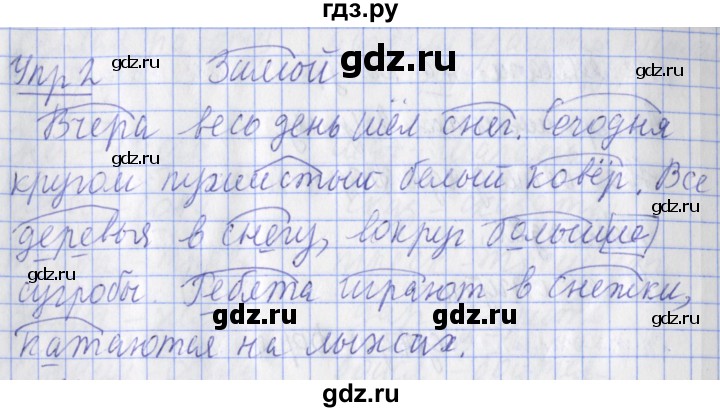 гдз.ру
Упр 2 Зимой gdz.ru gdz.ru
Вчера весь день шёл снег. Сегодня
gdz.ru gdz.ru
кругом пушистый белый ковёр. Все
gdz.ru gdz.ru
деревья в снегу, вокруг большие
gdz.ru gdz.ru
сугробы. Ребята играют в снежки,
gdz.ru gdz.ru
катаются на лыжах.
gdz.ru